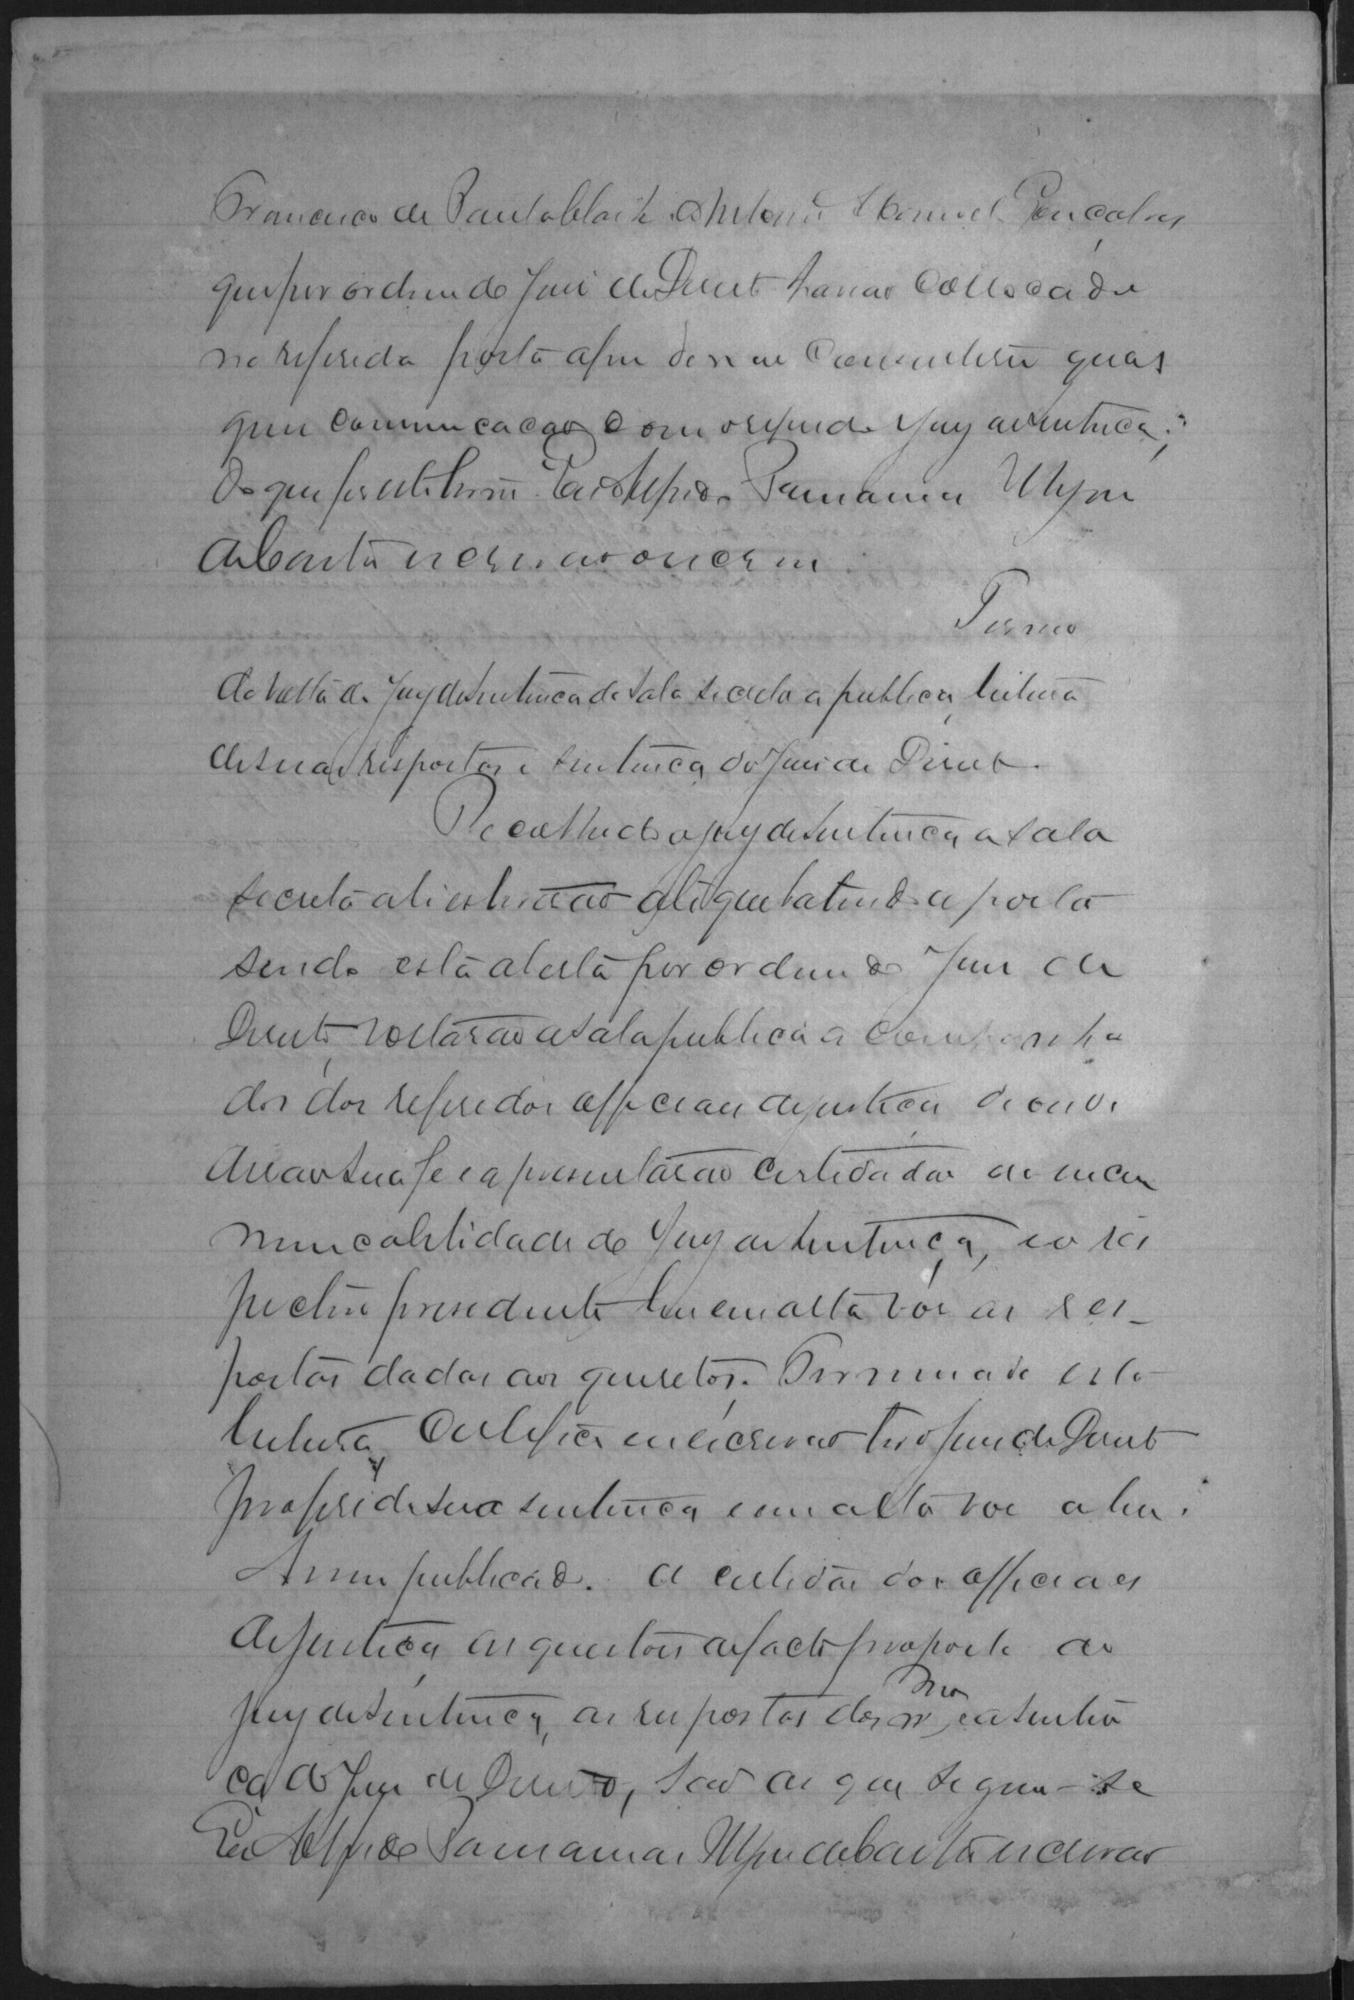 Francisco de Paula Leite e Antonio Manuel Gonçalves
que por ordem do Juis de Direito forão collocados
na referida porta afim de não consentirem quas
quer communicação com o referido Jury de sentença;
do que fiz este termo. Eu Alfredo
de Costa escrivão o escrevi
Termo
de volta do Jury de sentença da sala secreta a publica, leitura
de suas respostas e sentença do Juis de Direito.
Recolhido o jury de sentença a sala
secreta ali esteverão até que batendo a porta
sendo esta aberta por ordem do Juis de
Direito, voltarão a sala publica acompanha
dos dos referidos officiaes de justiça
sua fe e apresentarão certidão da incom
municabilidade do Jury de sentença, e o res
pectivo presidente leu em alta vós as res-
postas dadas aos quesitos. Terminada esta
leitura, o Juis de Direito
proferido sua sentença em alta voz a leu.
Assim publicado. A certidão dos officiaes
de justiça, as questões de facto proposta ao
jury de sentença, as respostas do mesmo, e a senten
ça do Juis de Direito, são as que seguem-se
Eu Alfredo de Costa escrivão